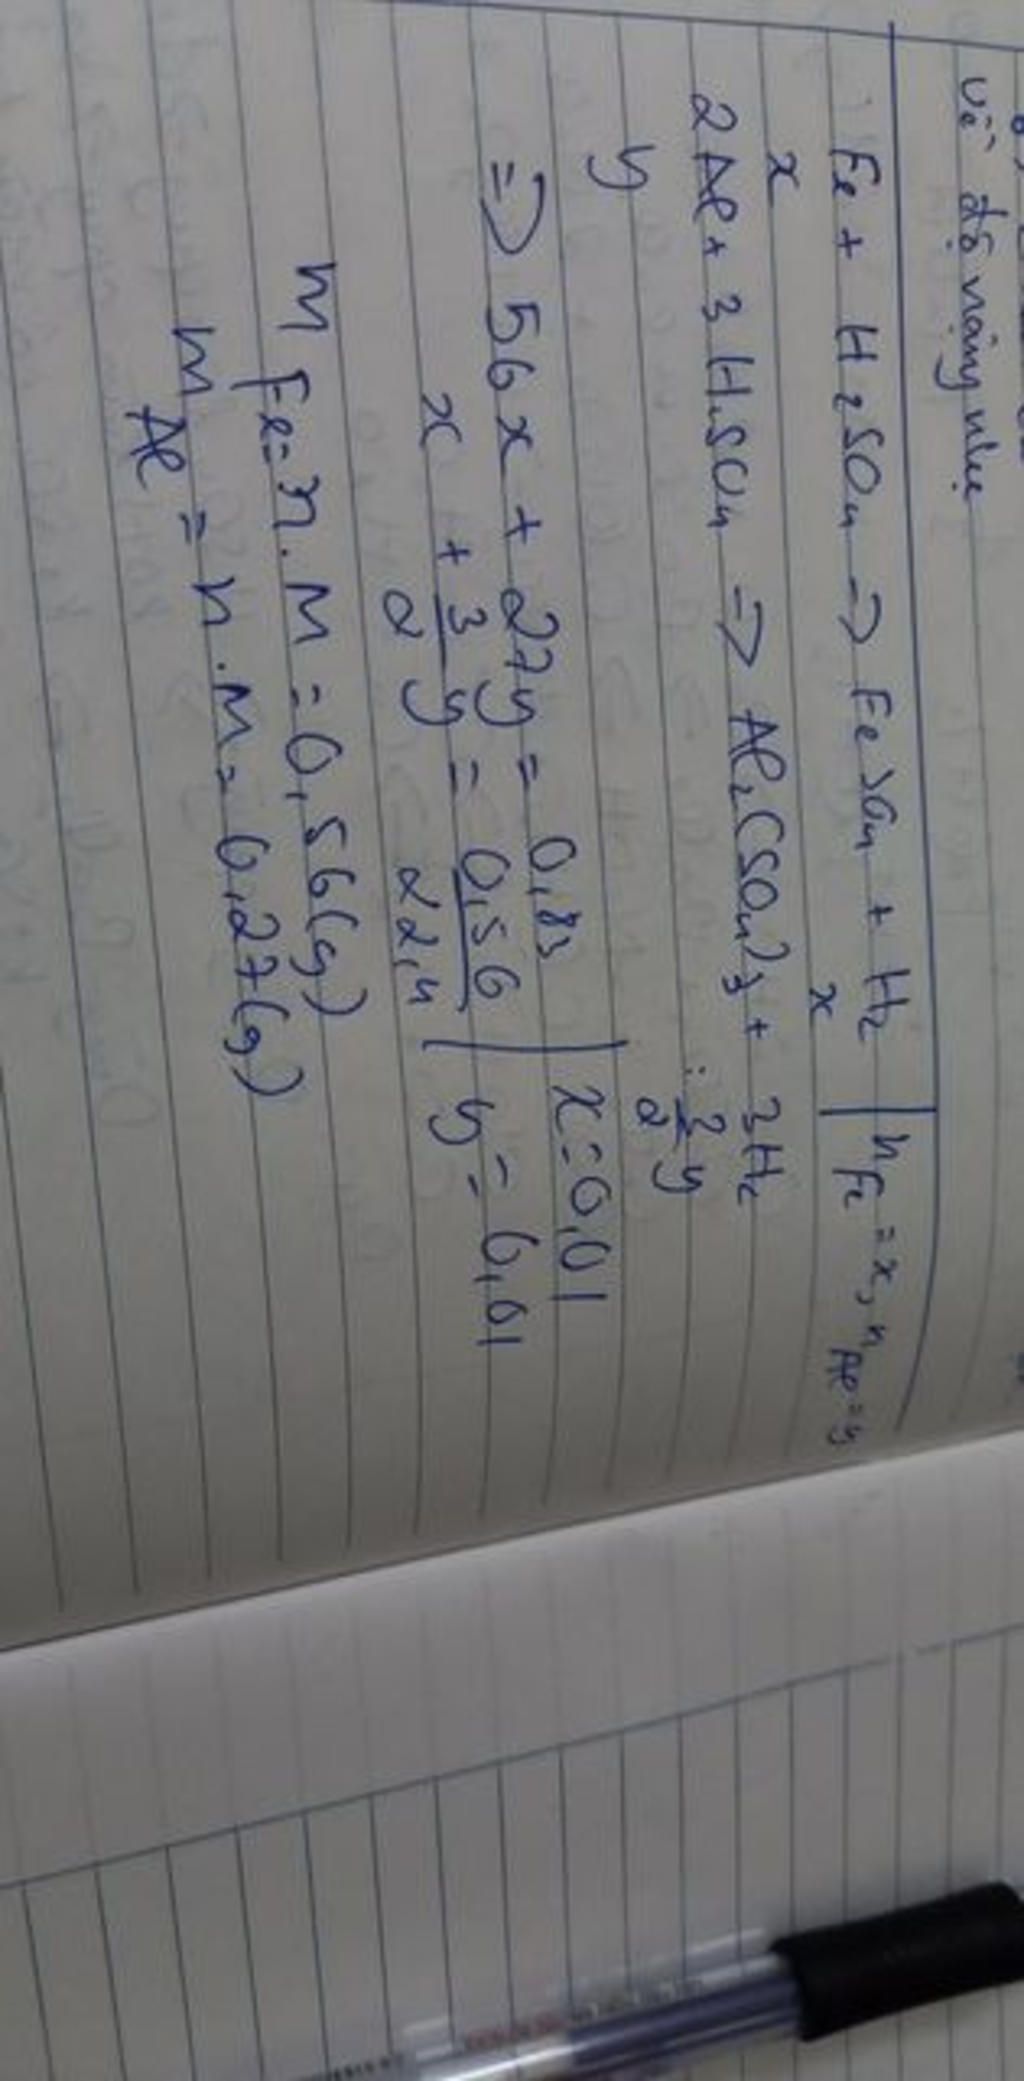 về độ nặng nhẹ
Fe + H2SO4 => FeSO4 + H2 | nFe = x, nAl = y
x x
2Al + 3H2SO4 => Al2(SO4)3 + 3H2
y 3/2 y
=> 56x + 27y = 0,83 | x = 0,01
x + 3/2 y = 0,56/22,4 | y = 0,01
mFe = n.M = 0,56(g)
mAl = n.M = 0,27(g)